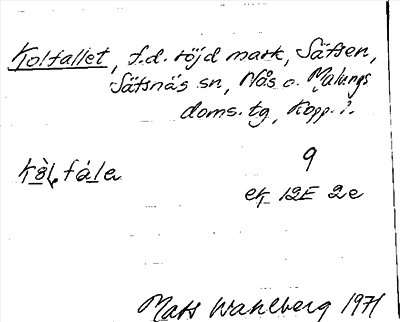 Kolfallet, f.d. röjd mark, Säfsen,
Säfsnäs sn, Nås o. Malungs
doms. tg, Kopp. l.
9
ek 12E 2e
Mats Wahlberg 1971